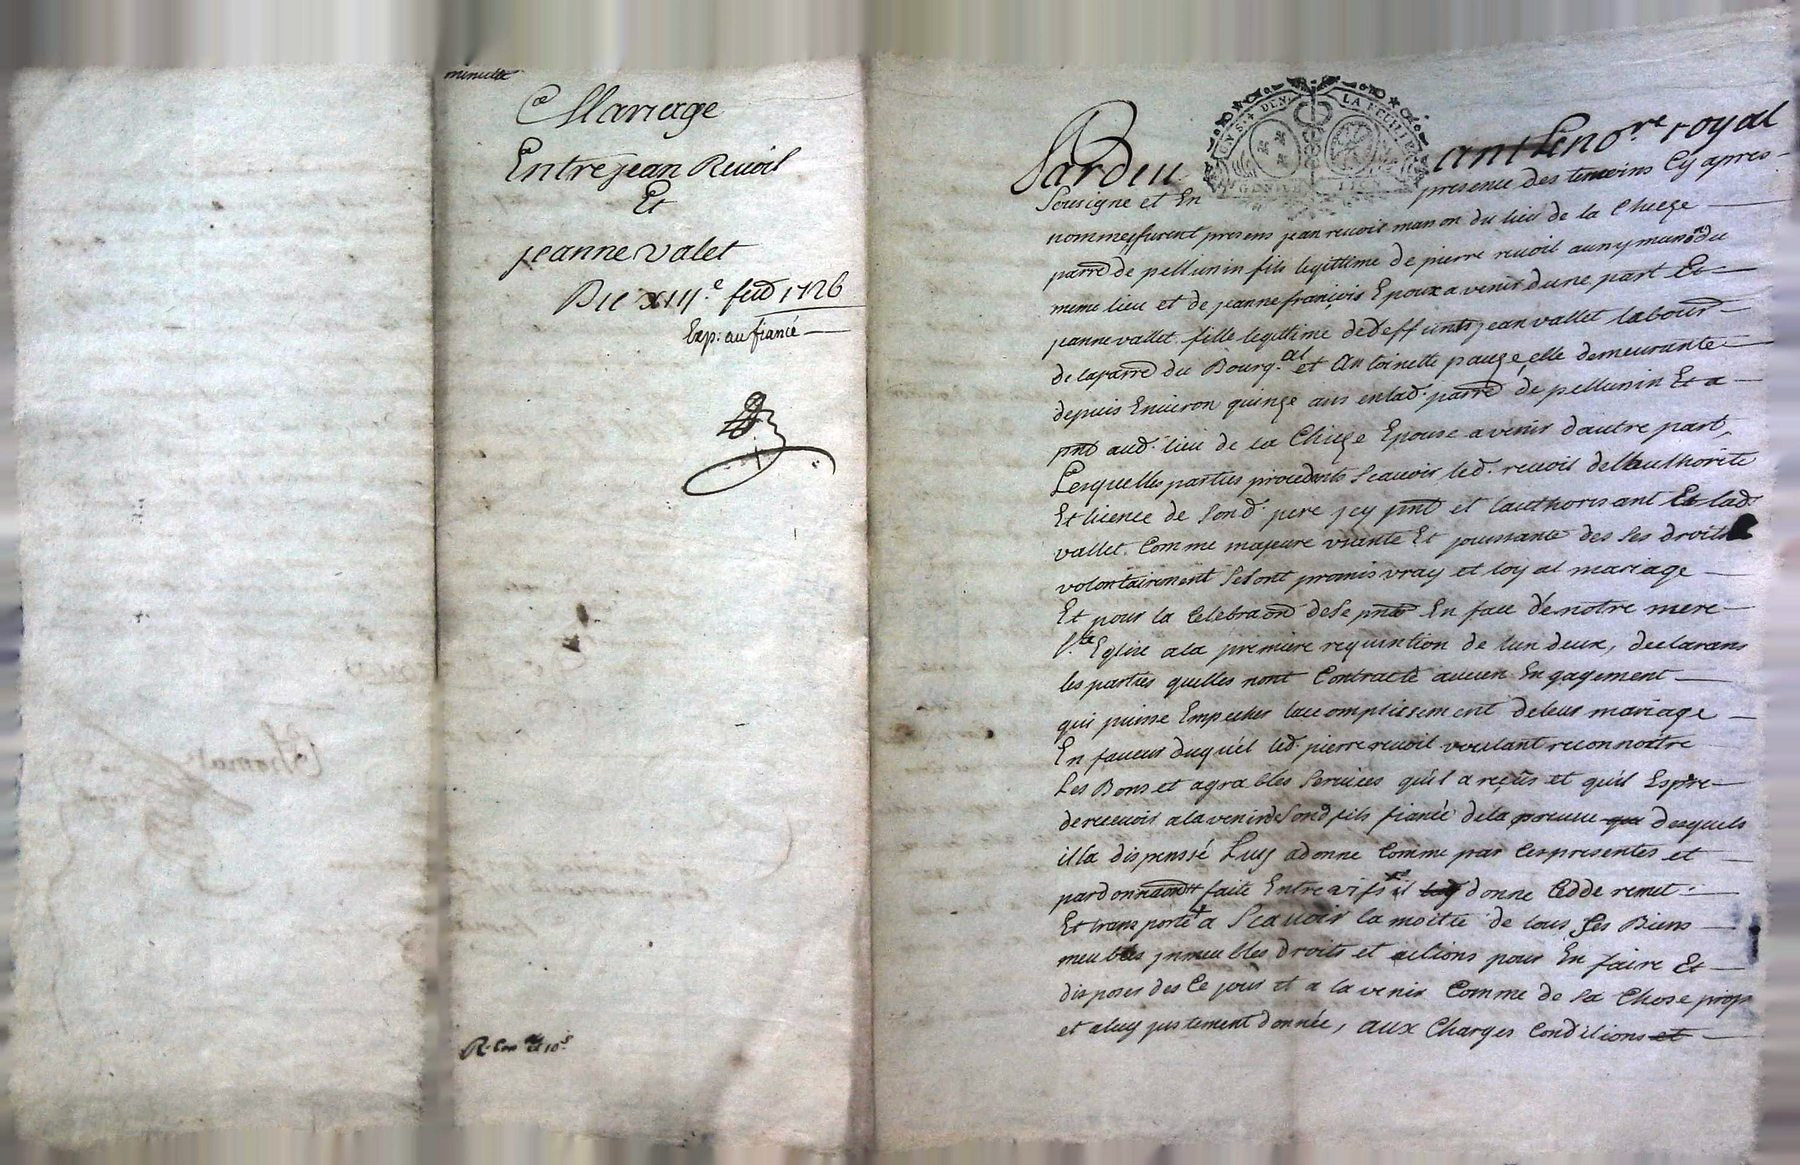 minutte
Mariage
Entre jean Revoil
Et
jeanne valet
Du xiii.e feu 1726
Exp: au fiancé
R. Con et 10s
Pardevant le no.re royal
UN S. 4 DEN. LA FEUILLE
Sousigne et En presence des temoins Cy apres
nommes furent presens jean revoil manon du lieu de la Chieze
parre de pellunin fils legittime de pierre revoil aussy mason du
meme lieu et de jeanne françois Epoux a venir dune part Et
jeanne vallet fille legittime de deffunts jean vallet labour
de la parre du Bourg.al et Antoinette pauze, elle demeurante
depuis Environ quinze ans en lad. parre de pellunin Et a
pnt aud. lieu de la Chieze Epouse a venir dautre part,
Lesquelles parties procedants Scavoir led. revoil de lauthorite
Et licence de sond. pere jcy pnt et lauthorisant Et lad
vallet. Comme majeure usante Et jouissante des ses droits
volontairement se sont promis vray et loyal mariage
Et pour la Celebraon de se pnter En face de notre mere
S.te Eglise a la premiere requisition de lun deux, declarans
les parties quelles nont Contracté aucun Engagement
qui puisse Empecher laccomplissiment de leur mariage
En faveur duquel led. pierre revoil voulant reconnoitre
Les Bons et agreables services quil a reçus et quil Espre
de recevoir a lavenir de Sond fils fiancé de la preuve que desquels
il la dispenssé Luy a donne comme par ces presentes et
par donnaon faite Entre vifs il luy donne Cedde remet
Et transporte a Scavoir la moitie de tous ses Biens
meubles jmmeubles droits et actions pour En faire Et
disposer des Ce jour et a lavenir Comme de sa Chose propr
et a luy justement donnée, aux Charges Conditions et